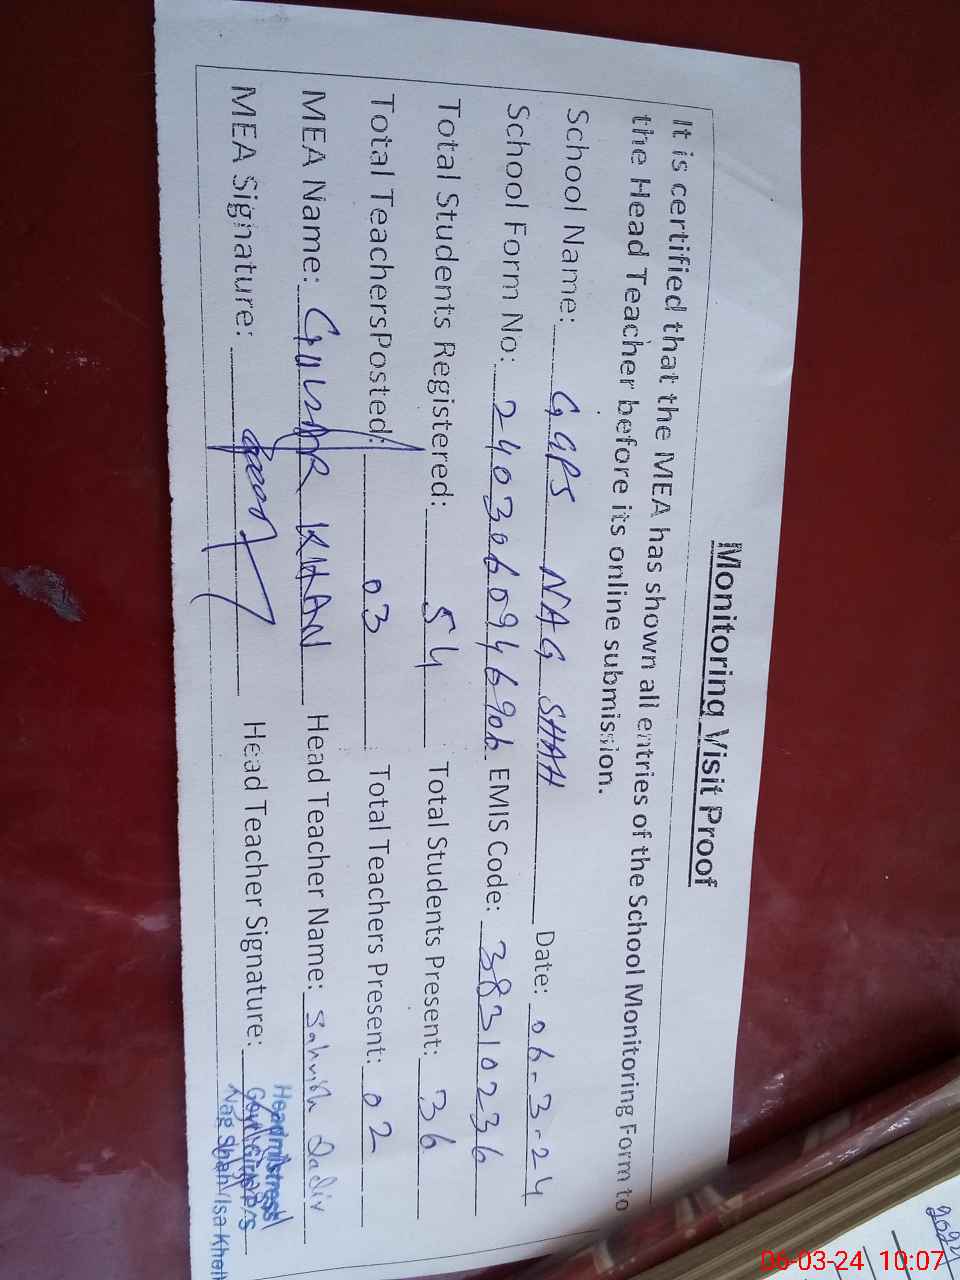 Monitoring Visit Proof
It is certified that the MEA has shown all entries of the School Monitoring Form to
the Head Teacher before its online submission.
School Name: GGPS NAG SHAH Date: 06-3-24
School Form No: 240306094690b EMIS Code: 38310236
Total Students Registered: 54 Total Students Present: 36
Total TeachersPosted: 03 Total Teachers Present: 02
MEA Name: KHAN Head Teacher Name:
MEA Signature: Head Teacher Signature:
Headmistress
Govt. Girls P/S
Nag Shah / Isa Khel
06-03-24 10:07